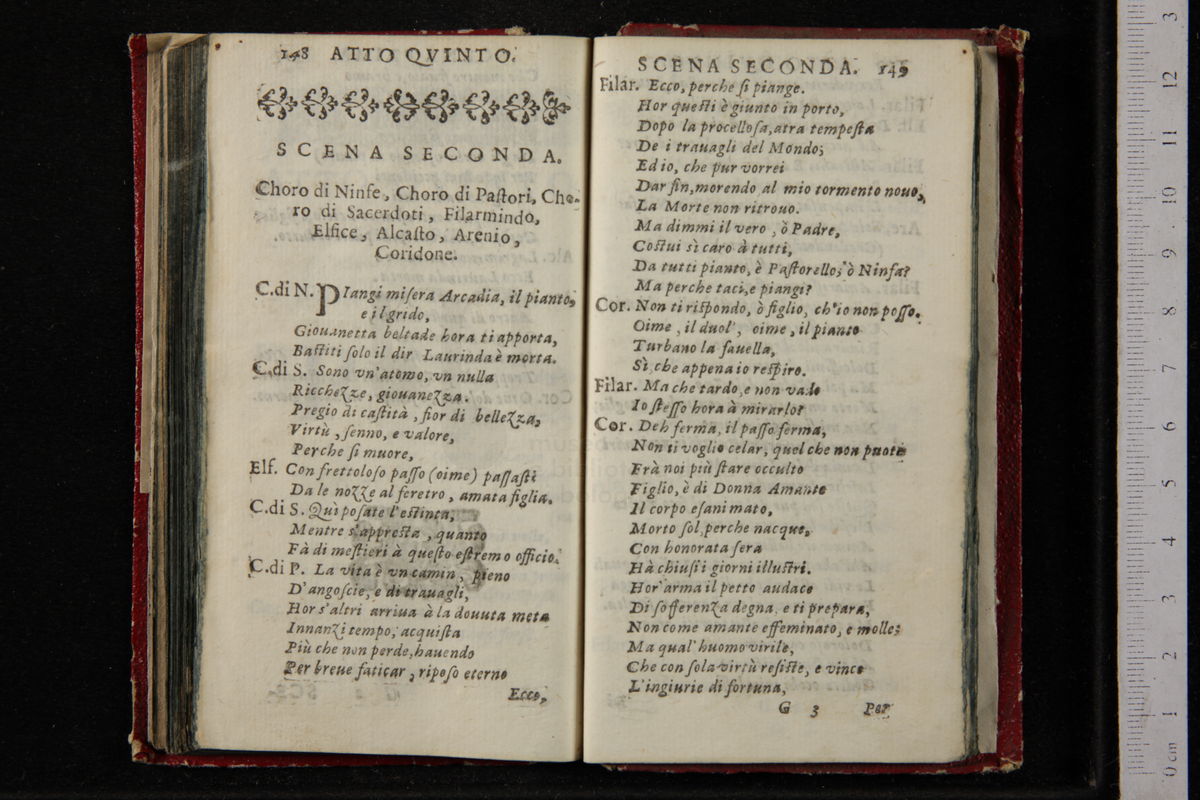 148 ATTO QVINTO.
SCENA SECONDA.
Choro di Ninfe, Choro di Paſtori, Cho-
ro di Sacerdoti, Filarmindo,
Elfice, Alcaſto, Arenio,
Coridone.
C.di N. PIangi miſera Arcadia, il pianto,
e il grido,
Giouanetta beltade hora ti apporta,
Baſtiti ſolo il dir Laurinda è morta.
C.di S. Sono vn'atomo, vn nulla
Ricchezze, giouanezza.
Pregio di caſtità, fior di bellezza,
Virtù, ſenno, e valore,
Perche ſi muore,
Elf. Con frettoloſo paſſo (oime) paſſaſti
Da le nozze al feretro, amata figlia.
C.di S. Quì poſate l'eſtinta,
Mentre s'appreſta, quanto
Fà di meſtieri à queſto eſtremo officio.
C.di P. La vita è vn camin, pieno
D'angoſcie, e di trauagli,
Hor s'altri arriua à la douuta meta
Innanzi tempo, acquiſta
Più che non perde, hauendo
Per breue faticar, ripoſo eterno
Ecco,
SCENA SECONDA. 149
Filar. Ecco, perche ſi piange.
Hor queſti è giunto in porto,
Dopo la procelloſa, atra tempeſta
De i trauagli del Mondo;
Ed io, che pur vorrei
Dar fin, morendo al mio tormento nouo,
La Morte non ritrouo.
Ma dimmi il vero, ò Padre,
Coſtui sì caro à tutti,
Da tutti pianto, è Paſtorello, ò Ninfa?
Ma perche taci, e piangi?
Cor. Non ti riſpondo, ò figlio, ch'io non poſſo.
Oime, il duol', oime, il pianto
Turbano la fauella,
Sì, che appena io reſpiro.
Filar. Ma che tardo, e non vado
Io ſteſſo hora à mirarlo?
Cor. Deh ferma, il paſſo ferma,
Non ti voglio celar, quel che non puote
Frà noi più ſtare occulto
Figlio, è di Donna Amante
Il corpo eſanimato,
Morto ſol, perche nacque,
Con honorata ſera
Hà chiuſi i giorni illuſtri.
Hor'arma il petto audace
Di ſofferenza degna, e ti prepara,
Non come amante effeminato, e molle;
Ma qual'huomo virile,
Che con ſola virtù reſiſte, e vince
L'ingiurie di fortuna,
G 3 Per
0 cm 1 2 3 4 5 6 7 8 9 10 11 12 13